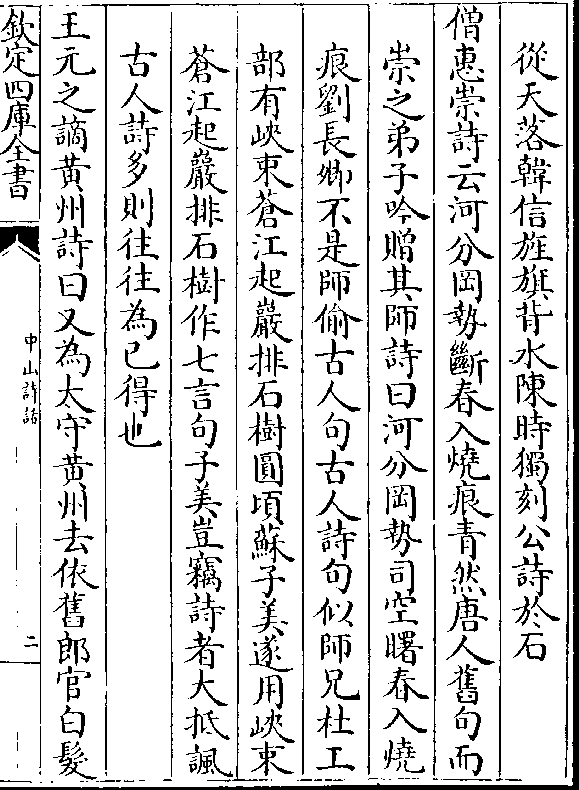 從天落韓信旌旗背水陳時獨刻公詩於石
僧惠崇詩云河分岡勢斷春入燒痕青然唐人舊句而
崇之弟子吟贈其師詩曰河分岡勢司空曙春入燒
痕劉長卿不是師偷古人句古人詩句似師兄杜工
部有峽束蒼江起巖排石樹圓頃蘇子美遂用峽束
蒼江起巖排石樹作七言句子美豈竊詩者大抵諷
古人詩多則往往為已得也
王元之謫黃州詩曰又為太守黄州去依舊郎官白髮
欽定四庫全書
中山詩話
二